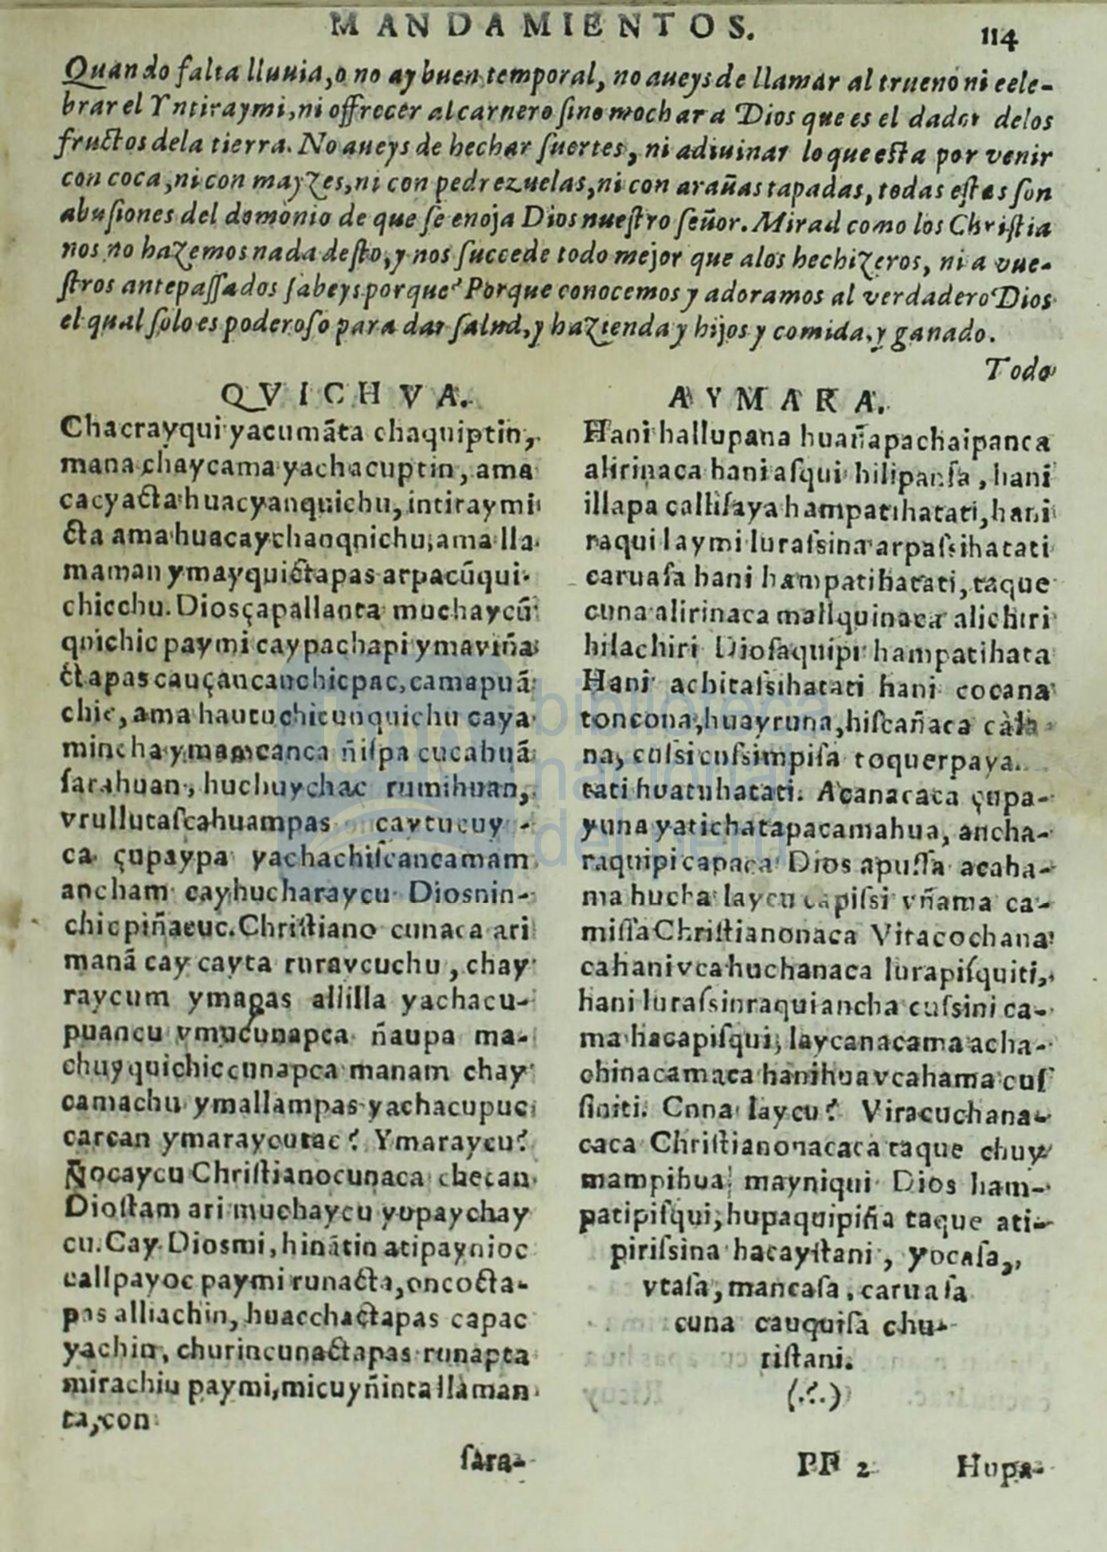 MANDAMIENTOS.
114
Quando falta lluuia, o no ay buen temporal, no aueys de llamar al trueno ni cele-
brar el Yntiraymi, ni offrecer al carnero sino mochar a Dios que es el dador delos
fructos dela tierra. No aueys de hechar suertes, ni adiuinar lo que esta por venir
con coca, ni con mayzes, ni con pedrezuelas, ni con arañas tapadas, todas estas son
abusiones del domonio de que se enoja Dios nuestro señor. Mirad como los Christia
nos no hazemos nada desto, y nos succede todo mejor que alos hechizeros, ni a vue-
stros antepassados sabeys porque? Porque conocemos y adoramos al verdadero Dios
el qual solo es poderoso para dar salud, y hazienda y hijos y comida, y ganado.
Todo
QVICHVA.
Chacrayqui yacumãta chaquiptin,
mana chaycama yachacuptin, ama
cacyacta huacyanquichu, intiraymi
cta ama huacaychanqnichu, ama lla
maman ymayquictapas arpacũqui
chicchu. Diosçapallanta muchaycũ
qnichic paymi caypachapi ymaviña
ctapas cauçancanchicpac, camapuã
chic, ama hautuchicunquichu caya
mincha ymamcanca ñispa cucahuã
sarahuan, huchuychac rumihuan,
vrullutascahuampas caytucuy -
ca çupaypa yachachiscancamam
ancham cayhucharaycu Diosnin-
chicpiñacuc. Christiano cunaca ari
manã cay cayta ruraycuchu, chay
raycum ymapas allilla yachacu-
puancu vmucunapca ñaupa ma-
chuyquichiccunapca manam chay
camachu ymallampas yachacupuc
carcan ymaraycutac? Ymaraycu?
Ñocaycu Christianocunaca checan
Diostam ari muchaycu yupaychay
cu. Cay Diosmi, hinãtin atipaynioc
callpayoc paymi runacta, oncocta-
pas alliachin, huacchactapas capac
yachin, churincunactapas runapta
mirachiu paymi, micuyñinta llaman
ta, con
sara-
AYMARA.
Hani hallupana huañapachaipanca
alirinaca hani asqui hilipansa, hani
illapa callisaya hampatihatati, hani
raqui laymi lurassina arpassihatati
caruasa hani hampatihatati, taque
cuna alirinaca mallquinaca alichiri
hilachiri Diosaquipi hampatihata
Hani achitassihatati hani cocana
toncona, huayruna, hiscañaca cala
na, cussi cussimpisa toquerpaya.
tati huatuhatati. Acanacaca çupa-
yuna yatichatapacamahua, ancha-
raquipi capaca Dios apussa acaha-
ma hucha laycu capissi vñama ca-
missa Christianonaca Viracochana
cahanivca huchanaca lurapisquiti,
hani lurassinraqui ancha cussini ca-
ma hacapisqui, laycanacama acha-
chinacamaca hanihuavcahama cus
siniti. Cnna laycu? Viracuchana-
caca Christianonacaca taque chuy
mampihua mayniqui Dios ham-
patipisqui, hupaquipiña taque ati-
pirissina hacaystani, yocasa,
vtasa, mancasa, caruasa
cuna cauquisa chu-
ristani.
(.?.)
PP 2
Hupa-
biblioteca
nacional
del perú